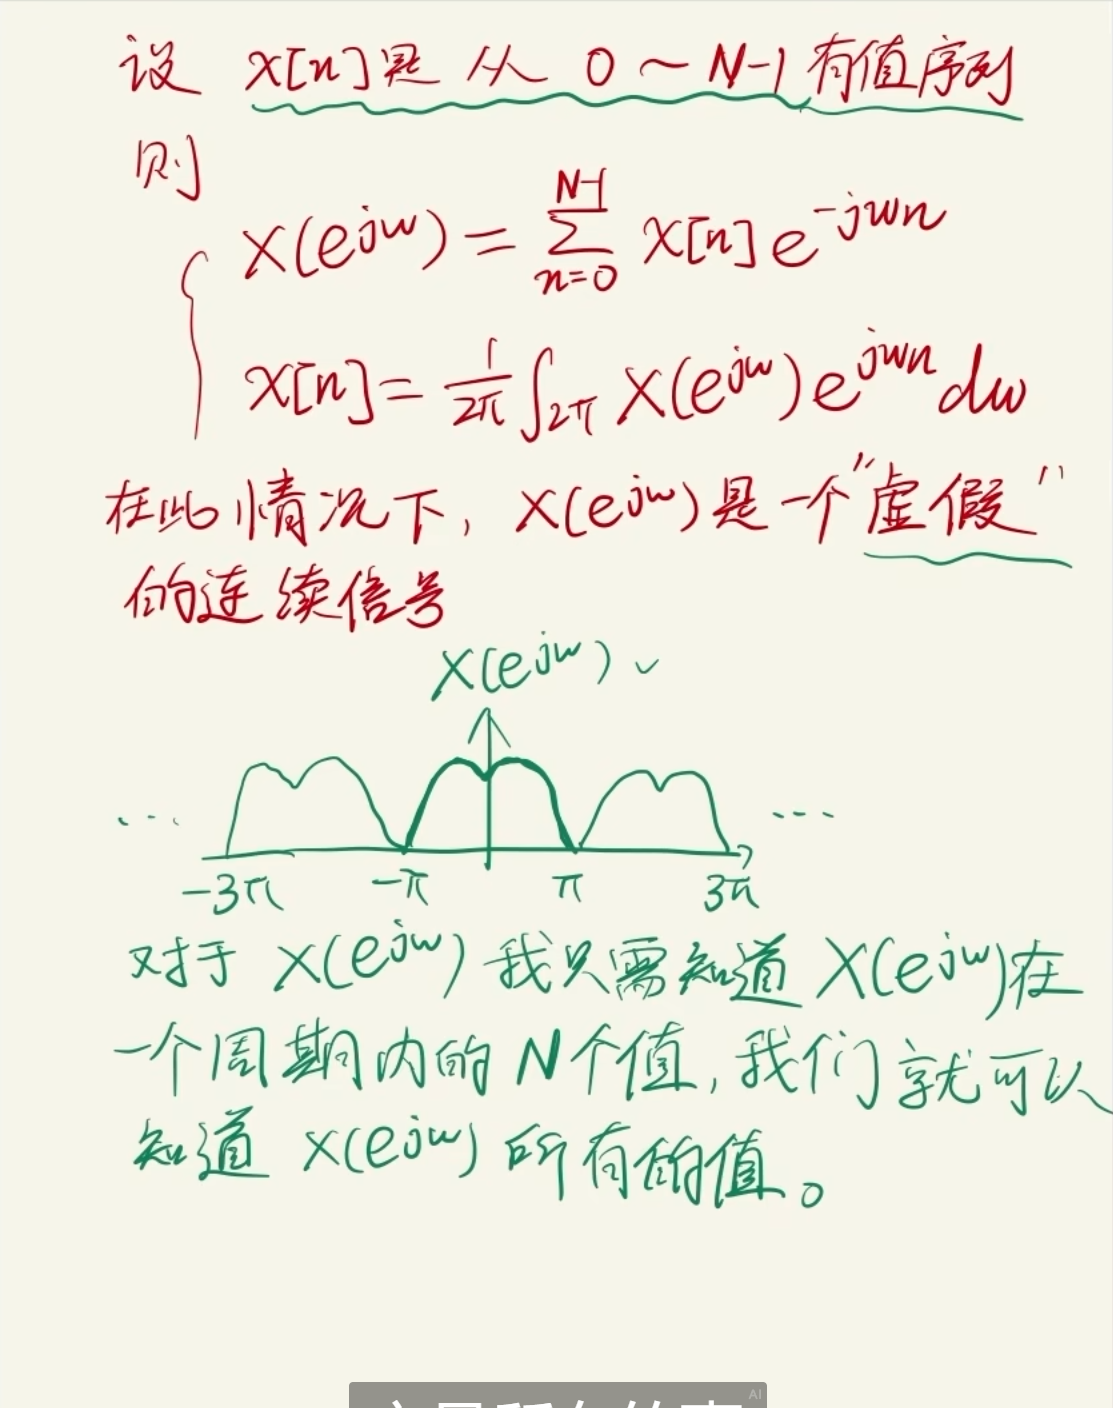 设 x[n]是 从 0 ~ N-1 有值序列
则
X(e^{jω}) = \sum_{n=0}^{N-1} x[n] e^{-jωn}
x[n] = \frac{1}{2π} \int_{2π} X(e^{jω}) e^{jωn} dω
在此情况下, X(e^{jω})是一个"虚假"
的连续信号
X(e^{jω})
... ...
-3π -π π 3π
对于 X(e^{jω}) 我只需知道 X(e^{jω})在
一个周期内的 N个值, 我们就可以
知道 X(e^{jω}) 所有的值。
AI